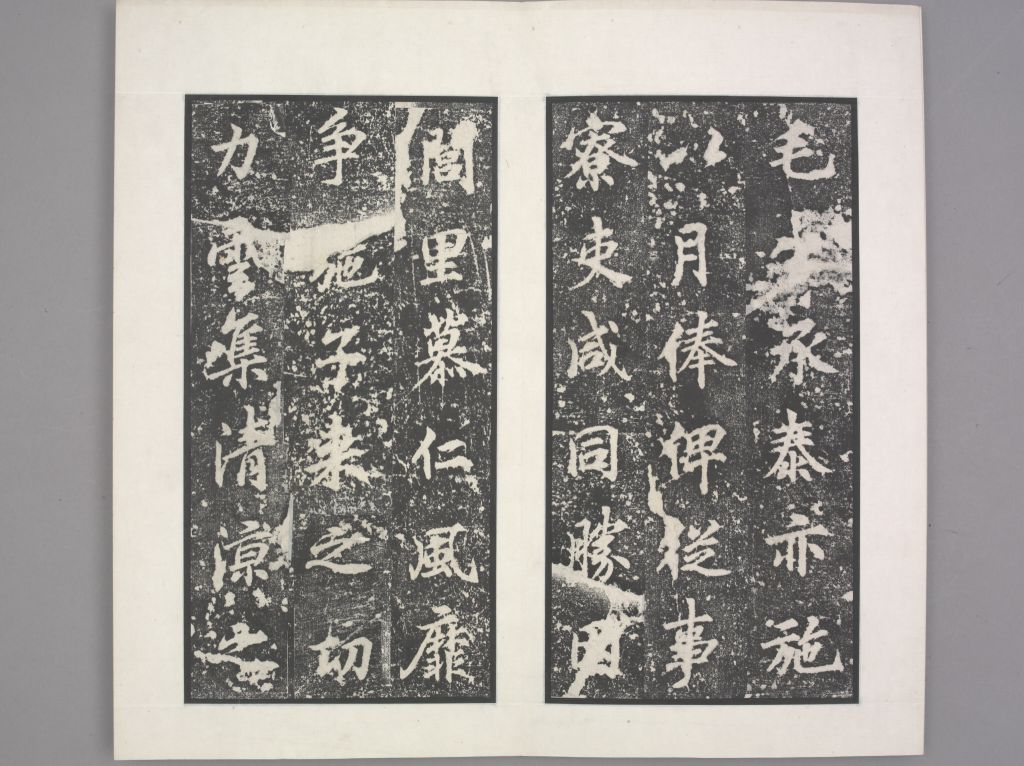 毛承泰亦施
以月俸俾從事
寮吏咸同勝因
閭里慕仁風靡
争施子来之功
力雲集清涼